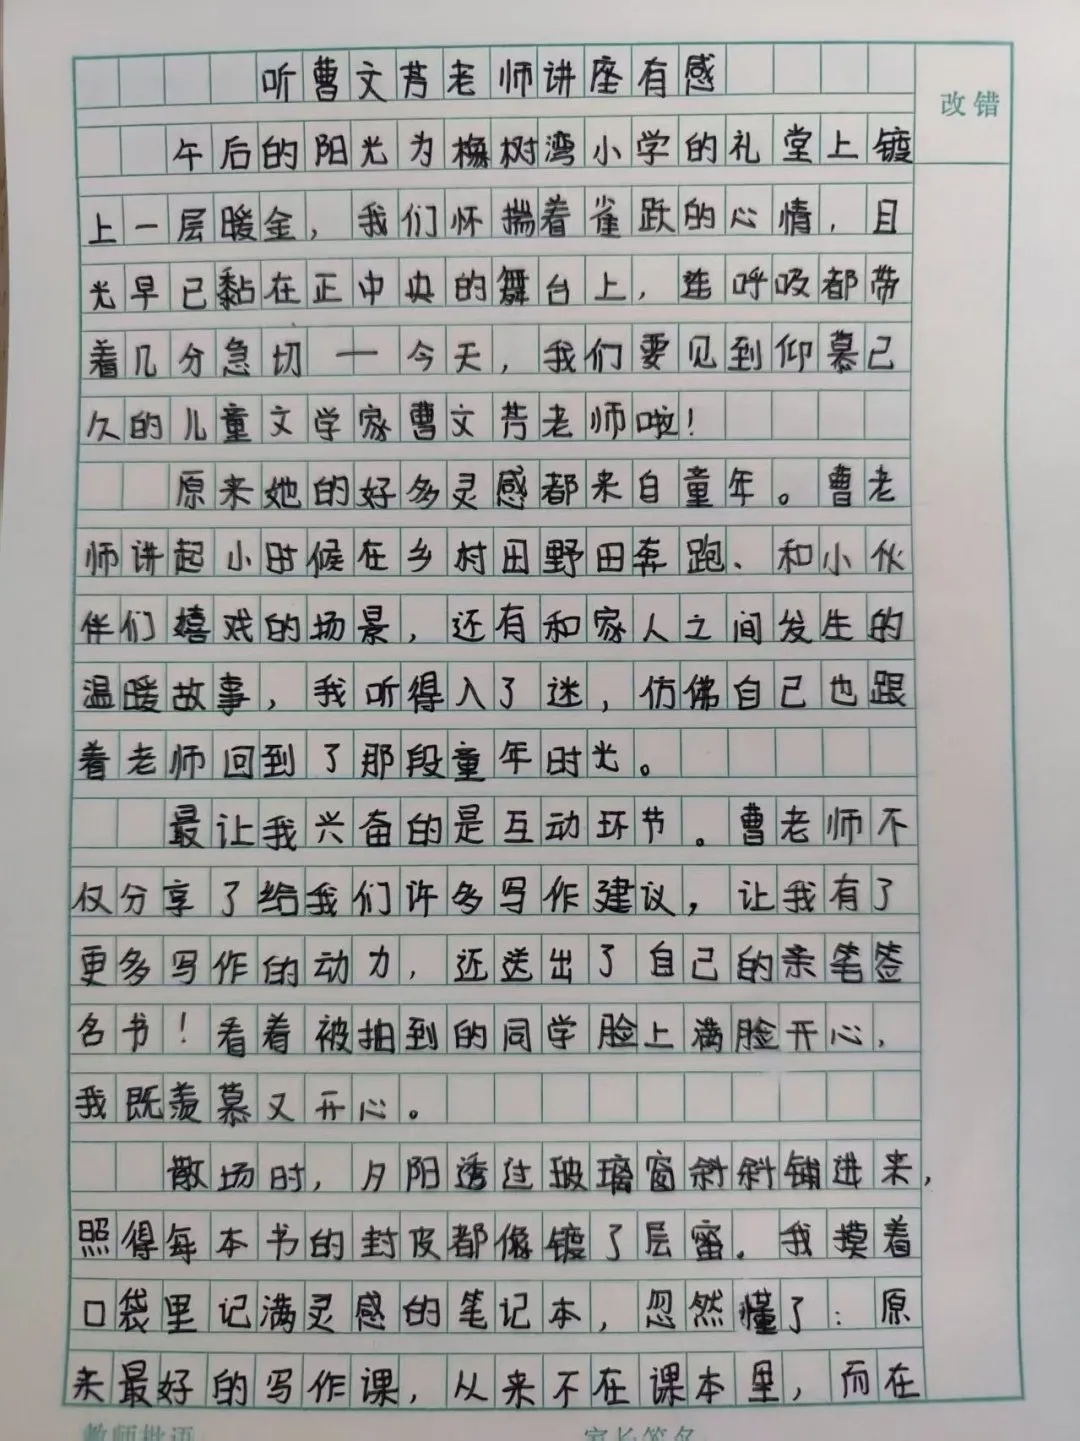 听曹文芳老师讲座有感
改错
午后的阳光为梅树湾小学的礼堂上镀
上一层暖金，我们怀揣着雀跃的心情，目
光早已黏在正中央的舞台上，连呼吸都带
着几分急切——今天，我们要见到仰慕已
久的儿童文学家曹文芳老师啦！
原来她的好多灵感都来自童年。曹老
师讲起小时候在乡村田野田奔跑、和小伙
伴们嬉戏的场景，还有和家人之间发生的
温暖故事，我听得入了迷，仿佛自己也跟
着老师回到了那段童年时光。
最让我兴奋的是互动环节。曹老师不
仅分享了给我们许多写作建议，让我有了
更多写作的动力，还送出了自己的亲笔签
名书！看着被抽到的同学脸上满脸开心，
我既羡慕又开心。
散场时，夕阳透过玻璃窗斜斜铺进来，
照得每本书的封皮都像镀了层蜜。我摸着
口袋里记满灵感的笔记本，忽然懂了：原
来最好的写作课，从来不在课本里，而在
教师批语
家长签名